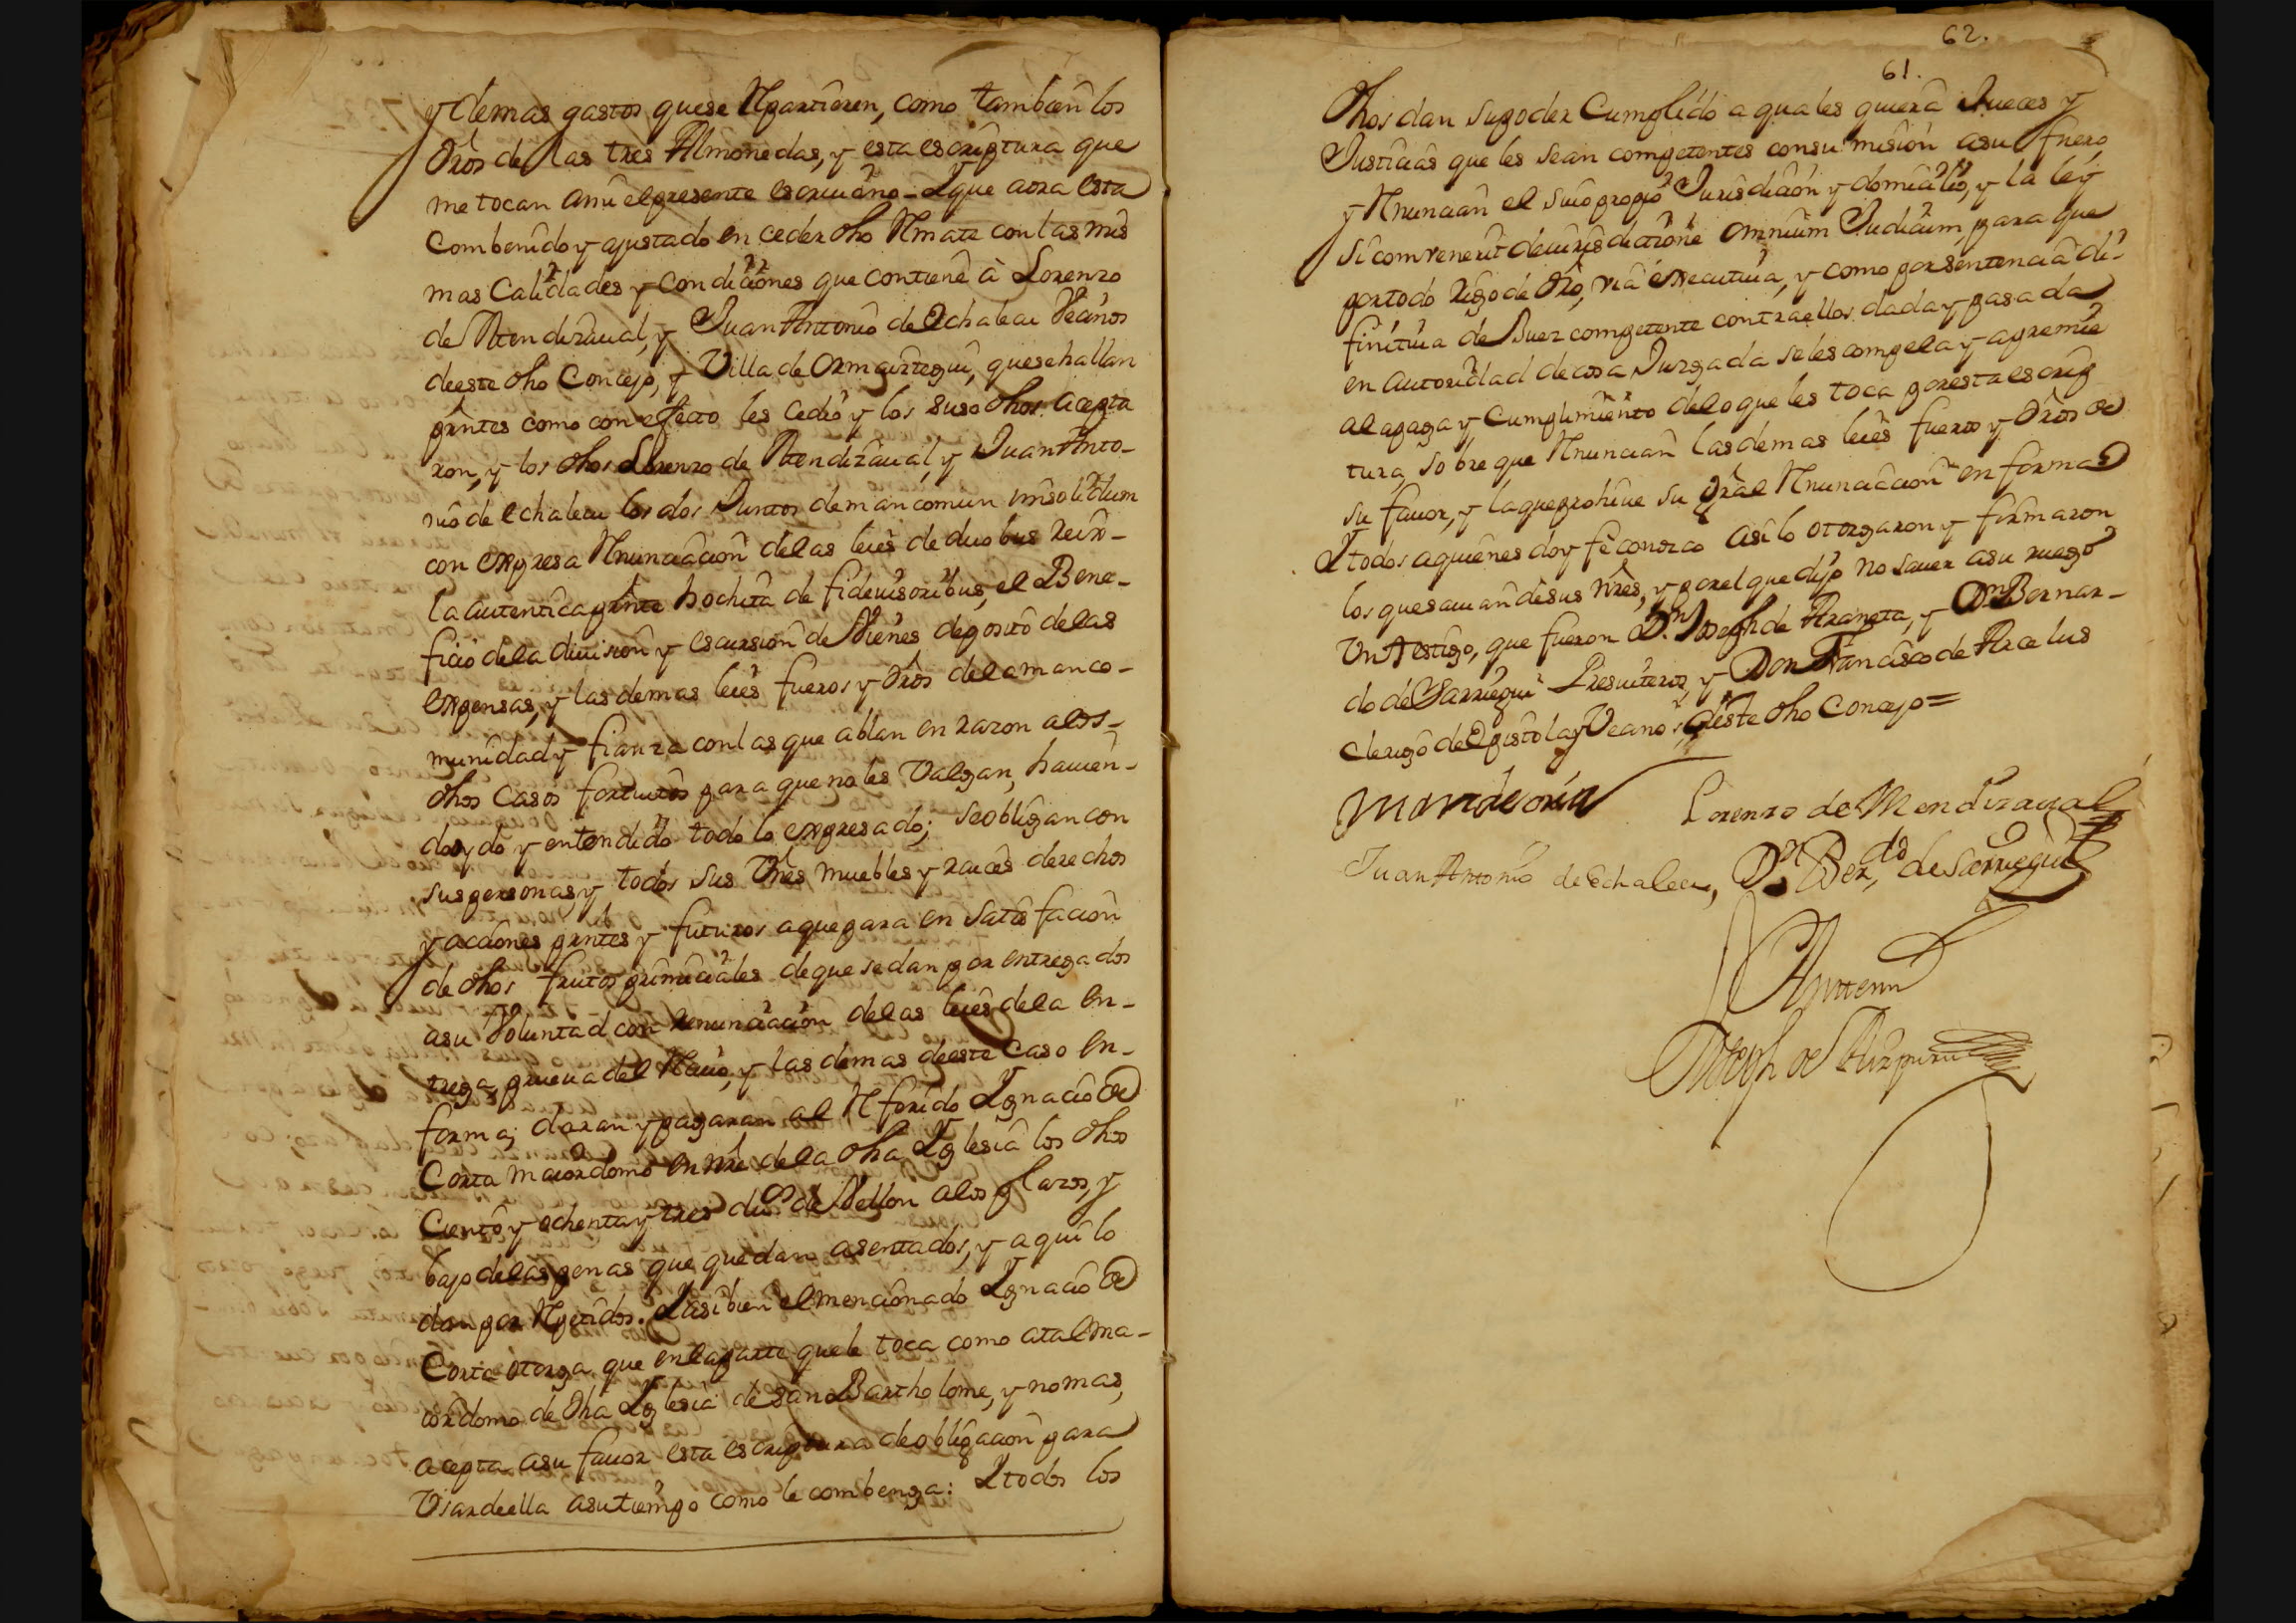 y demas gastos que se Rpartieren, como tambien los
dros de las tres Almonedas, y esta escriptura que
me tocan a mi el presente escriuano - Y que aora esta
combenido y ajustado en ceder dho Rmate con las mis
mas Calidades y condiciones que contiene à Lorenzo
de Mendizaual, y Juan Antonio de Echalecu Vecinos
de este dho Concejo, y Villa de Ormaiztegui, que se hallan
prntes como con efecto les cedio y los suso dhos acepta
ron, y los dhos Lorenzo de Mendizaual y Juan Anto-
nio de echalecu los dos Juntos de mancomun insolidum
con expresa Rnunciacion de las leies de duobus reis -
la autentica prnte hochita de fideiusoribus, el Bene-
ficio de la diuision y escursion de Vienes deposito de las
expensas, y las demas leies fueros y dros de la manco-
munidad y fianza con las que ablan en razon a los -
dhos Casos fortuitos para que no les Valgan, hauien-
do oydo y entendido todo lo expresado; se obligan con
sus personas y todos sus Vnes muebles y raices derechos
y acciones prntes y futuros a que para en satisfacion
de dhos frutos primiciales de que se dan por entregados
a su Voluntad con renunciacion de las leies de la en-
trega prueua del Rauio, y las demas de este Caso en-
forma; daran y pagaran al Rferido Ygnacio de
Corta maiordomo en nre de la dha Yglesia los dhos
Ciento y ochenta y tres dus de Vellon a los plazos, y
bajo de las penas que quedan asentados, y aqui lo
dan por Rpetidos. Y asi bien el mencionado Ygnacio de
Corta otorga que en la parte que le toca como a tal ma-
iordomo de dha Yglesia de san Bartholome, y no mas,
acepta a su fauor esta escriptura de obligacion para
Vsar de ella a su tiempo como le combenga: Y todos los
62.
61.
dhos dan su poder Cumplido a quales quiera Jueces y
Justicias que les sean competentes con su mision a su fuero
y Rnuncian el suio propio Jurisdicion y domicilio, y la ley
si combenerit de iurisdictione omnium Judicum, para que
por todo rigo de dro, via executiua, y como por sentencia di-
finitiua de Juez competente contra ellos dada y pasada
en autoridad de cosa Juzgada se les compela y apremie
al apaga y Cumplimiento de lo que les toca por esta escrip
tura, sobre que Rnuncian las demas leies fueros y dros de
su fauor, y la que prohiue su gral Rnunciacion en forma
Y todos a quienes doy fe conozco asi lo otorgaron y firmaron
los que sauian de sus nres, y por el que dijo no sauer a su ruego
Vn testigo, que fueron Dn Joseph de Araneta, y Dn Bernar-
do de Sarriegui Presuiteros, y Don Francisco de Arcelus
Clerigo de Epistola y Vecinos de este dho Concejo =
Lorenzo de Mendizaual
Juan Antonio de Echalecu, Dn Berdo de Sarriegui
Ante mi
Joseph de Aizpuru